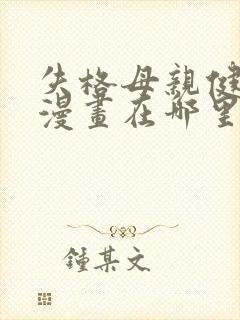 失格母親健
漫畫在哪里
鍾某文